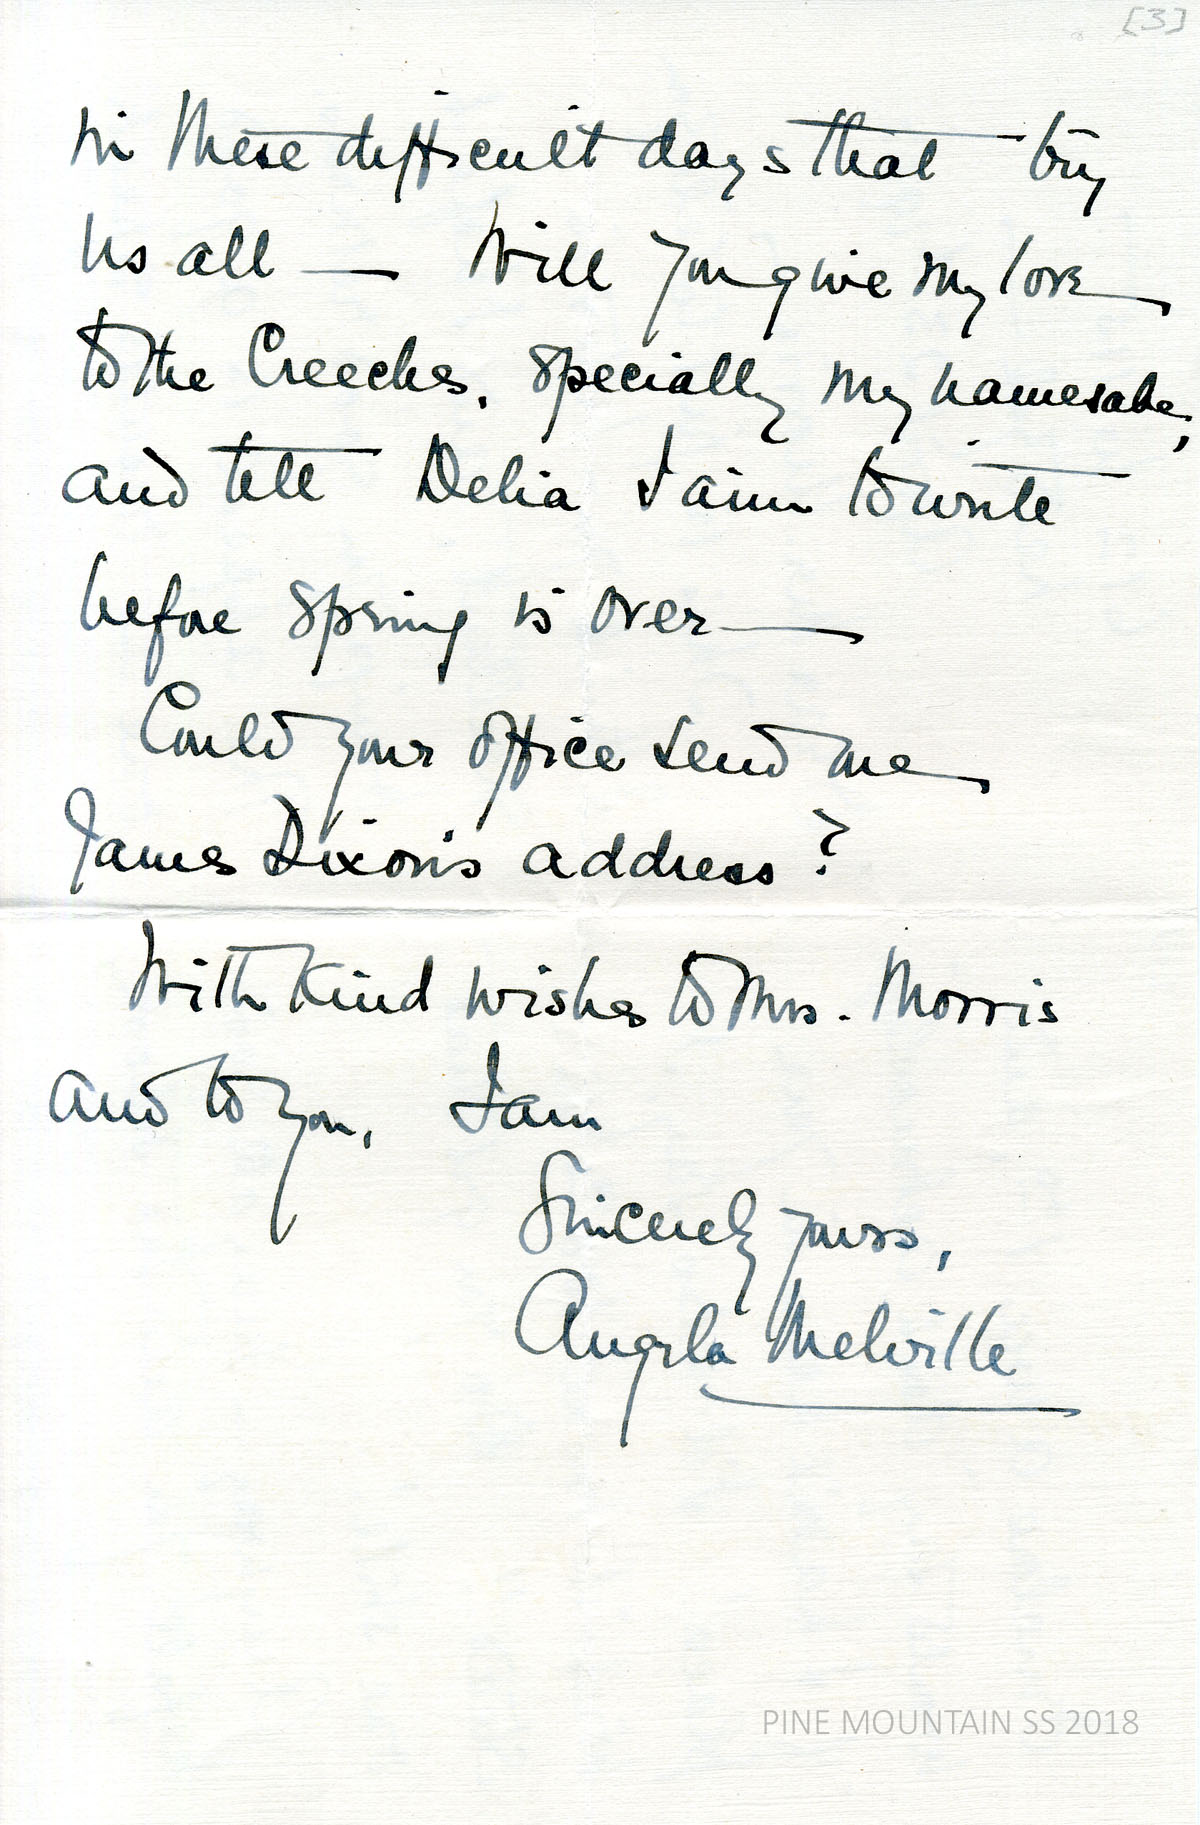 [3]
in these difficult days that try
us all — Will you give my love
to the Creeches, specially my namesake,
and tell Delia I aim to write
before spring is over —
Could your office send me
James Dixon's address?
With kind wishes to Mrs. Morris
and to you, I am
Sincerely yours,
Angela Melville
PINE MOUNTAIN SS 2018